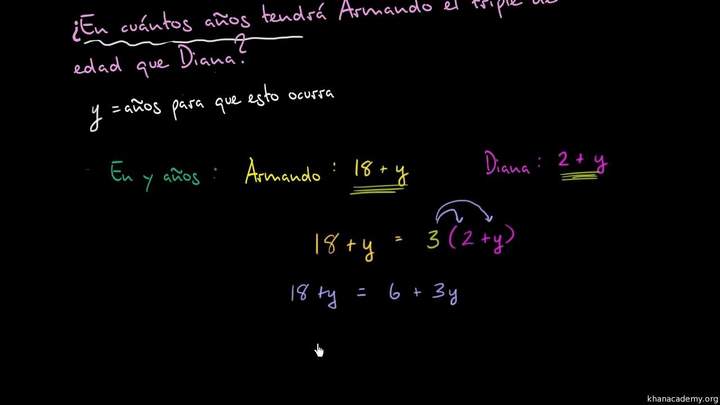 ¿En cuántos años tendrá Armando el triple de
edad que Diana?
y = años para que esto ocurra
En y años : Armando : 18 + y Diana : 2 + y
18 + y = 3 (2 + y)
18 + y = 6 + 3y
khanacademy.org